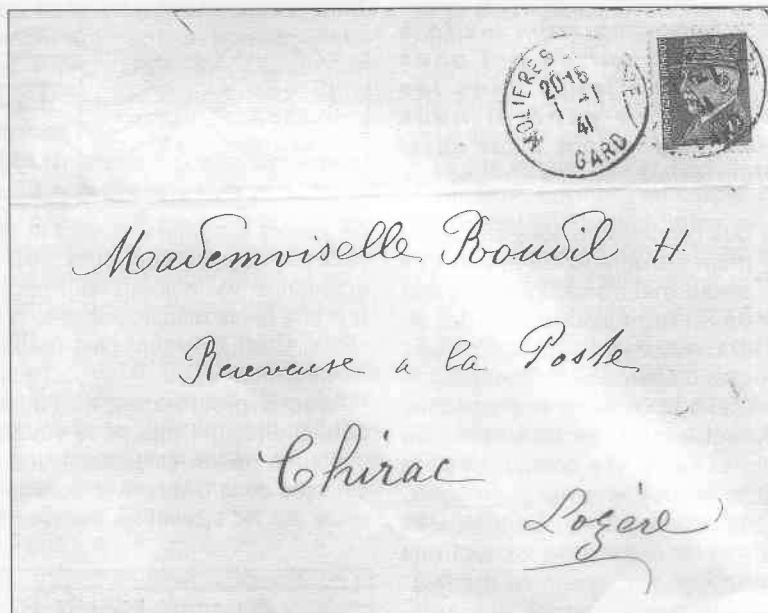 MOLIERES
20-15
1 - 1
41
GARD
Mademoiselle Roudil H
Receveuse a la Poste
Chirac
Lozère